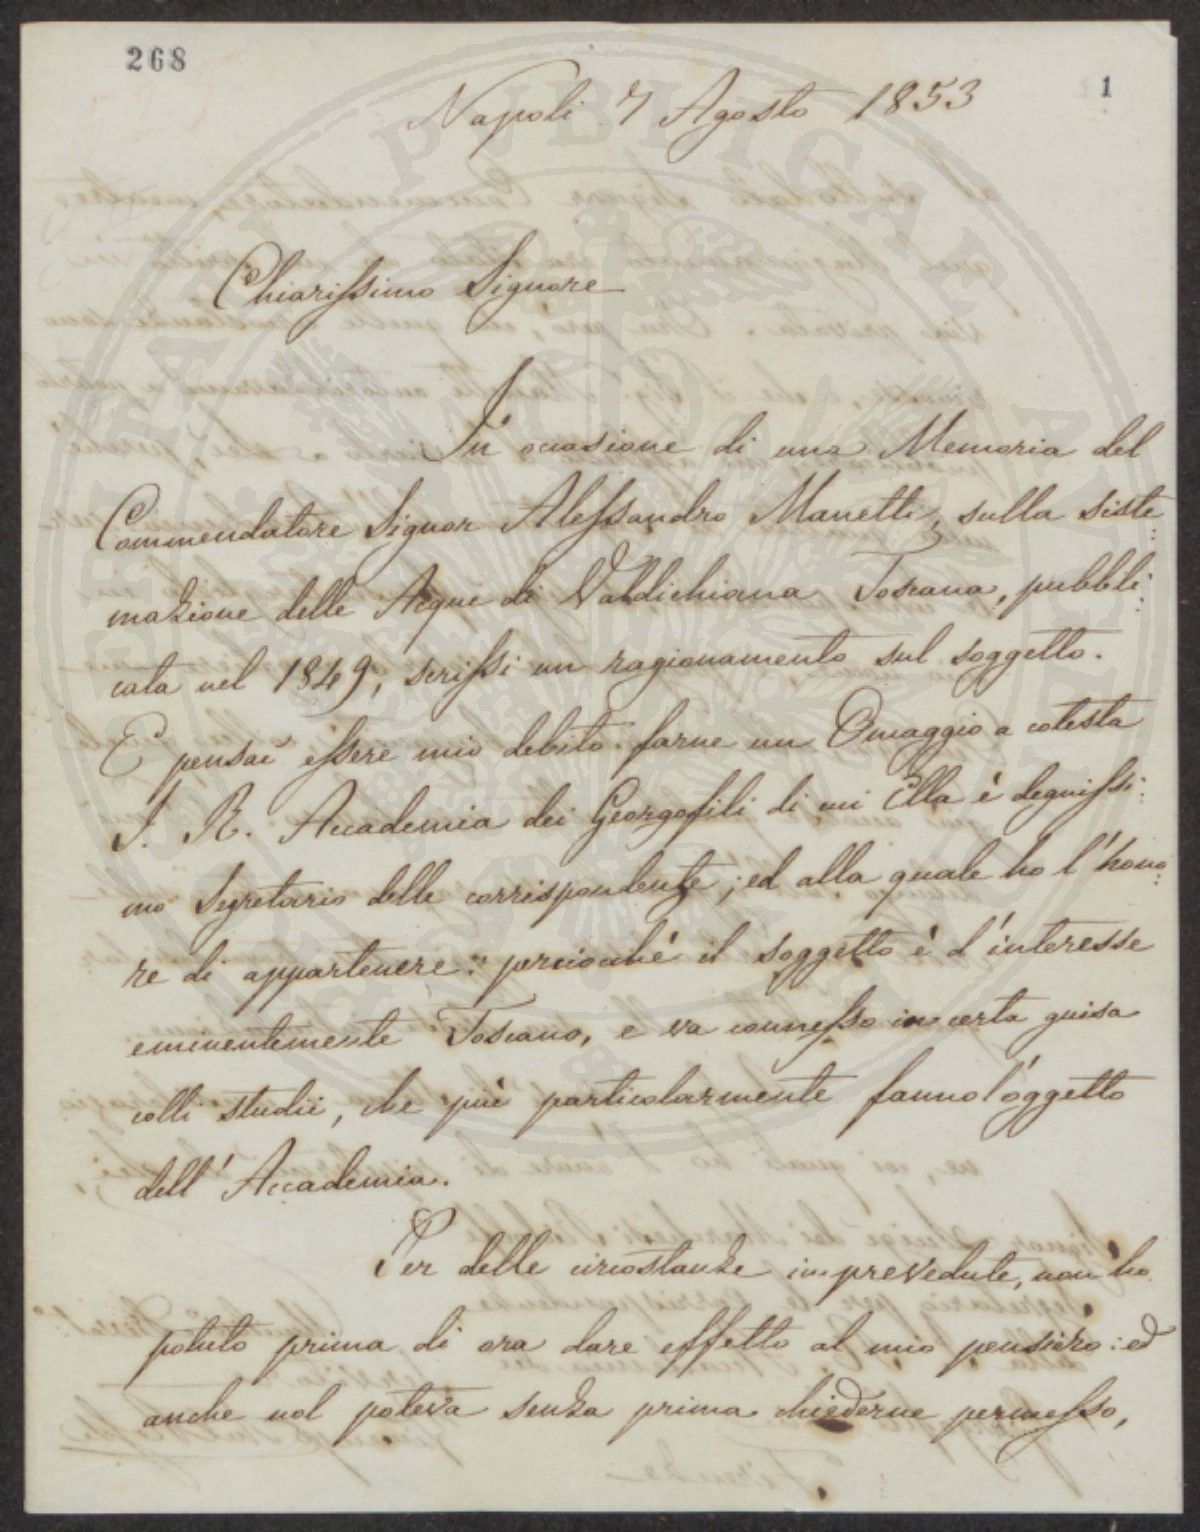 268
1
Napoli 7 Agosto 1853
Chiarissimo Signore
In occasione di una Memoria del
Commendatore Signor Alessandro Manetti, sulla siste:
mazione delle Acque di Valdichiana Toscana, pubbli:
cata nel 1849, scrissi un ragionamento sul soggetto.
E pensai essere mio debito farne un Omaggio a cotesta
I. R. Accademia dei Georgofili di cui Ella è degnissi:
mo Segretario delle corrispondenze; ed alla quale ho l'hono:
re di appartenere: perciocché il soggetto è d'interesse
eminentemente Toscano, e va connesso in certa guisa
colli studii, che più particolarmente fanno l'oggetto
dell'Accademia.
Per delle circostanze imprevedute, non ho
potuto prima di ora dare effetto al mio pensiero: ed
anche nol poteva senza prima chiederne permesso,